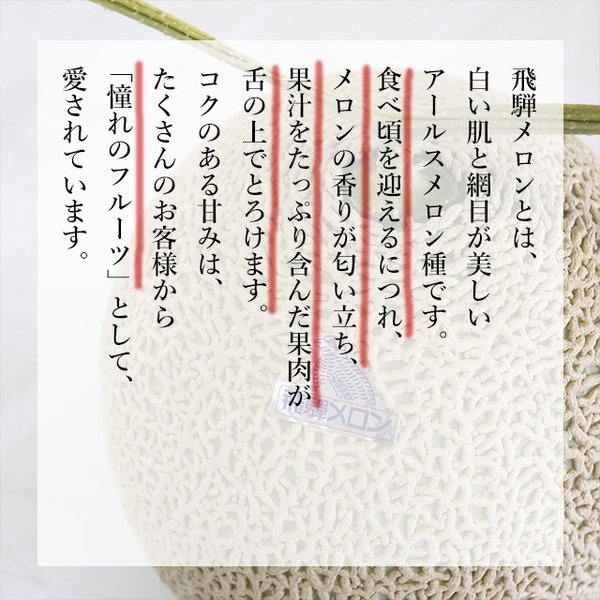 飛騨メロンとは、
白い肌と網目が美しい
アールスメロン種です。
食べ頃を迎えるにつれ、
メロンの香りが匂い立ち、
果汁をたっぷり含んだ果肉が
舌の上でとろけます。
コクのある甘みは、
たくさんのお客様から
「憧れのフルーツ」として、
愛されています。
飛騨メロン